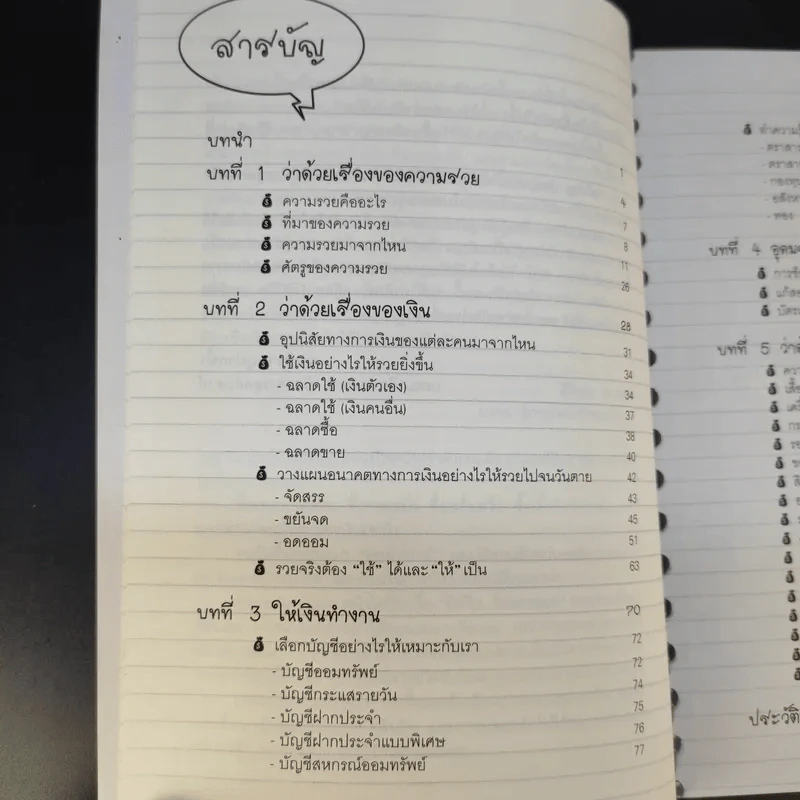 สารบัญ
บทนำ 1
บทที่ 1 ว่าด้วยเรื่องของความรวย 4
ความรวยคืออะไร 7
ที่มาของความรวย 8
ความรวยมาจากไหน 11
ศัตรูของความรวย 26
บทที่ 2 ว่าด้วยเรื่องของเงิน 28
อุปนิสัยทางการเงินของแต่ละคนมาจากไหน 31
ใช้เงินอย่างไรให้รวยยิ่งขึ้น 34
- ฉลาดใช้ (เงินตัวเอง) 34
- ฉลาดใช้ (เงินคนอื่น) 37
- ฉลาดซื้อ 38
- ฉลาดขาย 40
วางแผนอนาคตทางการเงินอย่างไรให้รวยไปจนวันตาย 42
- จัดสรร 43
- ขยันจด 45
- อดออม 51
รวยจริงต้อง "ใช้" ได้และ "ให้" เป็น 63
บทที่ 3 ให้เงินทำงาน 70
เลือกบัญชีอย่างไรให้เหมาะกับเรา 72
- บัญชีออมทรัพย์ 72
- บัญชีกระแสรายวัน 74
- บัญชีฝากประจำ 75
- บัญชีฝากประจำแบบพิเศษ 76
- บัญชีสหกรณ์ออมทรัพย์ 77
- ทอง
บทที่ 4
บทที่ 5
ประวัติ